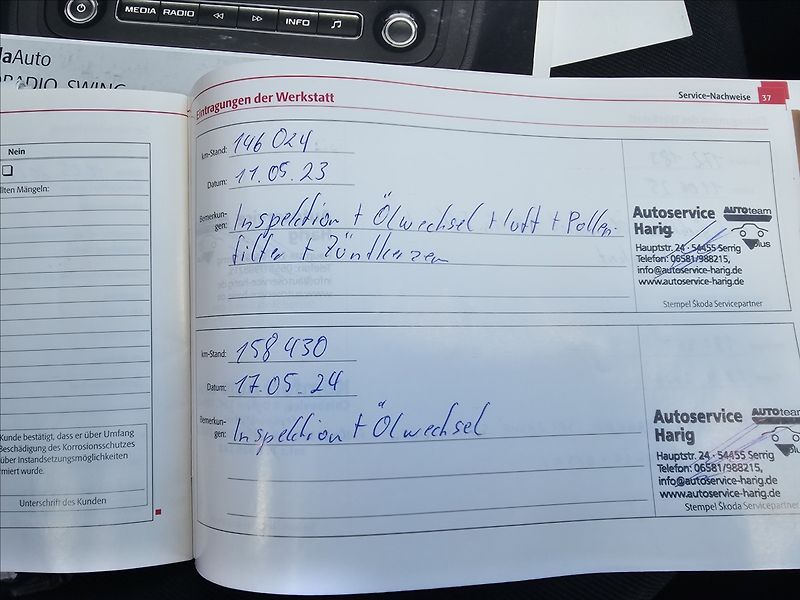 MEDIA RADIO INFO
daAuto
RADIO SWING
Nein
llten Mängeln:
Kunde bestätigt, dass er über Umfang
Beschädigung des Korrosionsschutzes
über Instandsetzungsmöglichkeiten
rmiert wurde.
Unterschrift des Kunden
Eintragungen der Werkstatt
Service-Nachweise 37
km-Stand: 146 024
Datum: 11.05.23
Bemerkun-
gen:
Inspektion + Ölwechsel + Luft + Pollen-
filter + Zündkerzen
Autoservice
Harig
AUTOteam
plus
Hauptstr. 24 · 54455 Serrig
Telefon: 06581/988215,
info@autoservice-harig.de
www.autoservice-harig.de
Stempel Škoda Servicepartner
km-Stand: 158 430
Datum: 17.05.24
Bemerkun-
gen:
Inspektion + Ölwechsel
Autoservice
Harig
AUTOteam
plus
Hauptstr. 24 · 54455 Serrig
Telefon: 06581/988215,
info@autoservice-harig.de
www.autoservice-harig.de
Stempel Škoda Servicepartner